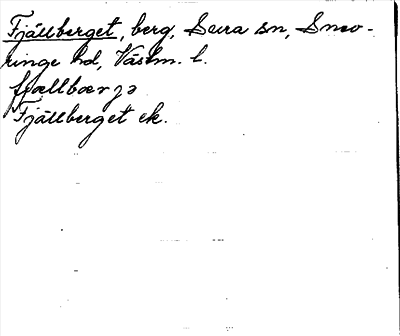 Fjällberget, berg, Sura sn, Snev-
ringe hd, Västm. l.
fjællbærjə
Fjällberget ek.